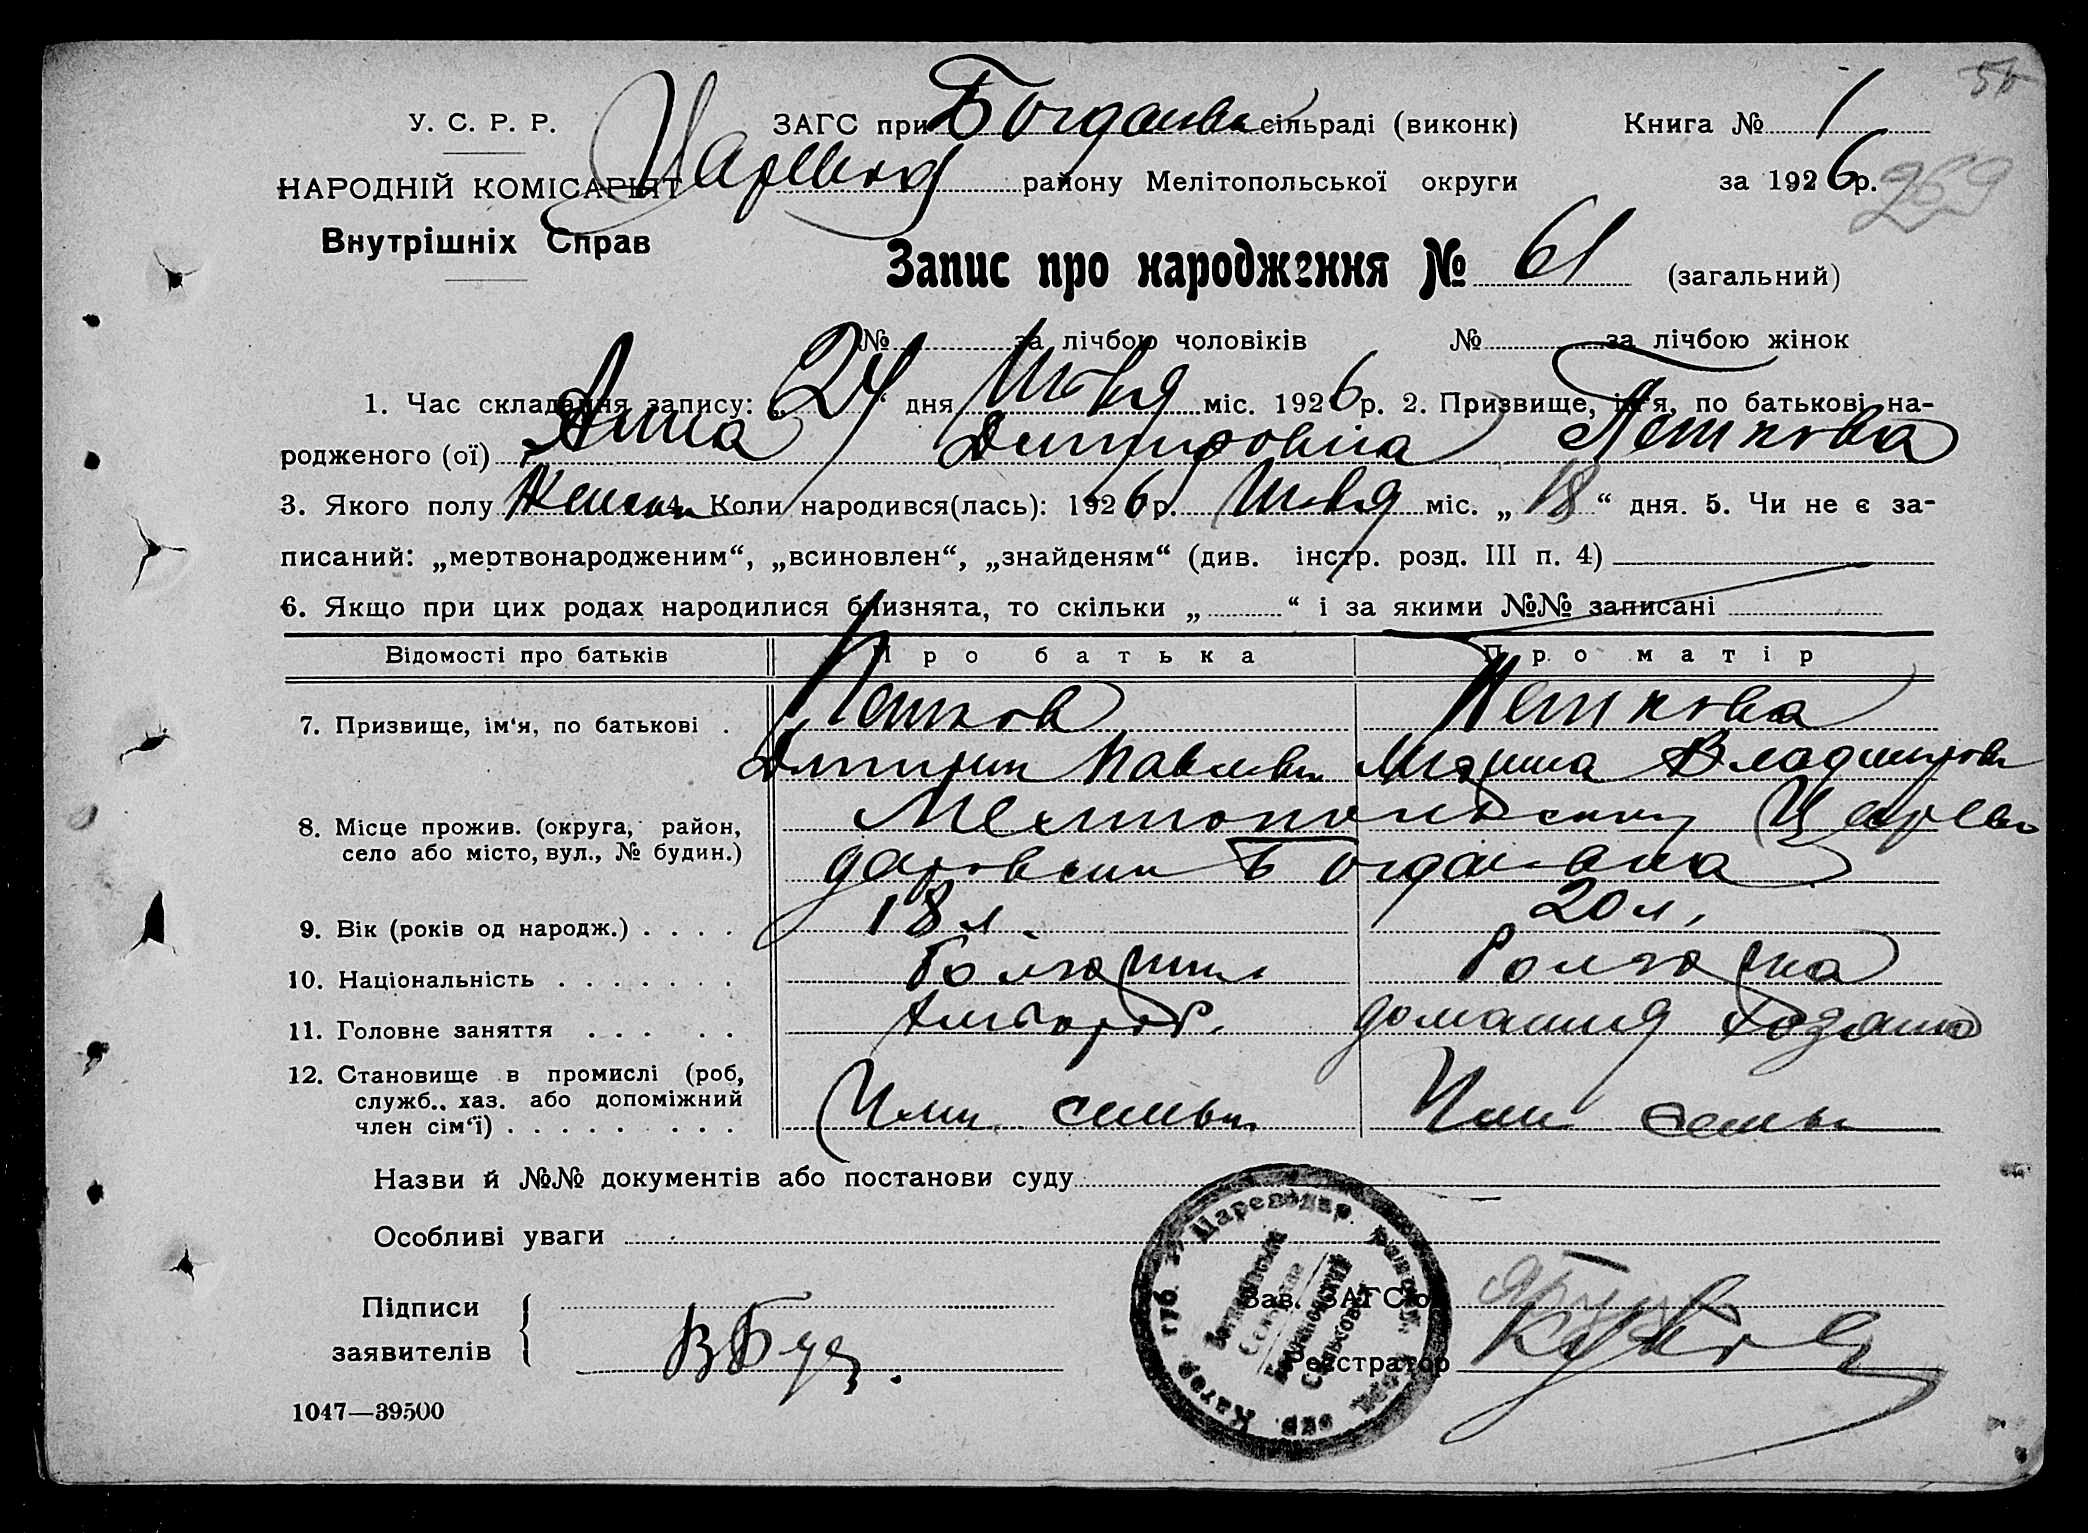 50
У. С. Р. Р. ЗАГС при Богдановк сільраді (виконк) Книга № 1
НАРОДНІЙ КОМІСАРІЯТ Царевод району Мелітопольської округи за 1926 р. 269
Внутрішніх Справ
Запис про народження № 61 (загальний)
№ за лічбою чоловіків № за лічбою жінок
1. Час складання запису: „ 24 “ дня Июня міс. 1926 р. 2. Призвище, ім'я, по батькові на-
родженого (ої) Анна Дмитровна Петкова
3. Якого полу Женск 4. Коли народився(лась): 1926 р. Июня міс. „ 18 “ дня. 5. Чи не є за-
писаний: „мертвонародженим“, „всиновлен“, „знайденям“ (див. інстр. розд. III п. 4)
6. Якщо при цих родах народилися близнята, то скільки „ “ і за якими №№ записані
Відомості про батьків Про батька Про матір
7. Призвище, ім‘я, по батькові . Петков Петкова
Дмитрий Павлови Марина Владимиров
8. Місце прожив. (округа, район, Мелитопольский Царево
село або місто, вул., № будин.) даровский Богдановка
9. Вік (років од народж.) . . . . 18 л. 20 л.
10. Національність . . . . . . . Болгарин Болгарка
11. Головне заняття . . . . . Хлебороб. домашняя хозяйка
12. Становище в промислі (роб,
служб., хаз. або допоміжний Член семьи Член семьи
член сім‘ї) . . . . . . . . .
Назви й №№ документів або постанови суду
Особливі уваги
Підписи Зав. ЗАГС'ом
заявителів Реєстратор
Цареводар. район
1047—39500